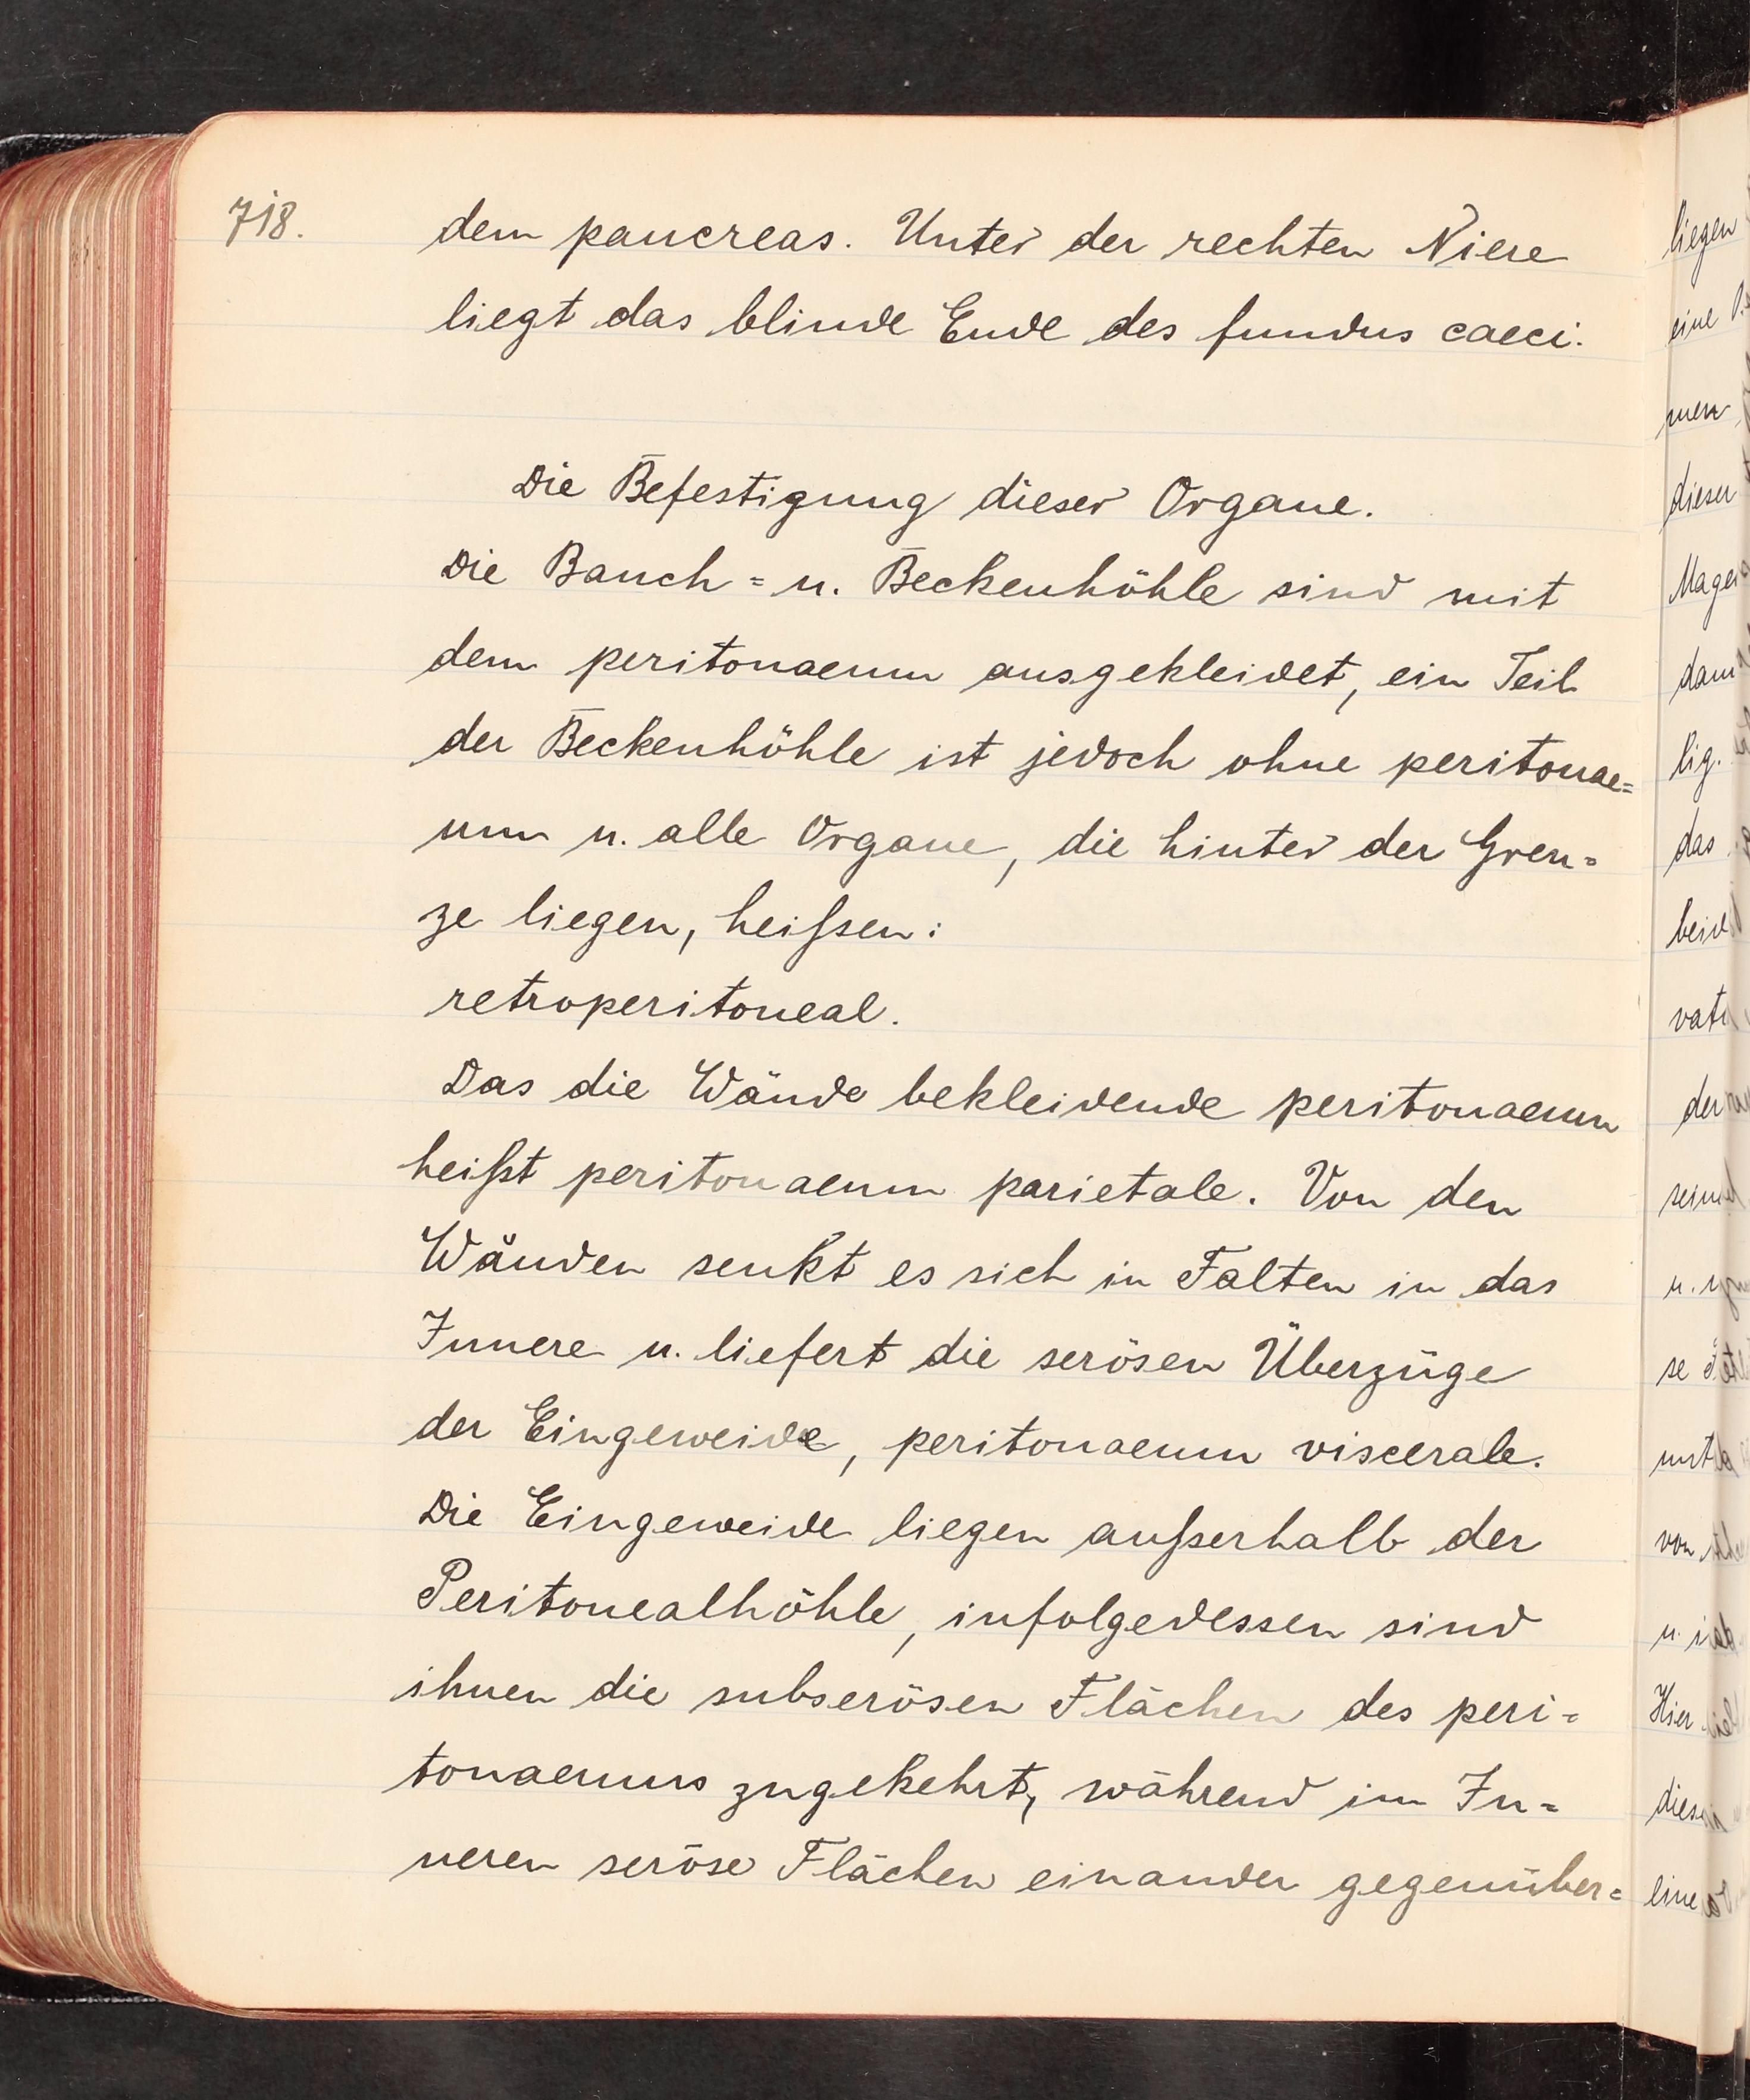 718.
dem pancreas. Unter der rechten Niere
liegt das blinde Ende des fundus caeci.
Die Befestigung dieser Organe.
Die Bauch= u. Beckenhöhle sind mit
dem peritonaeum ausgekleidet, ein Teil
der Beckenhöhle ist jedoch ohne peritonae=
um u. alle Organe, die hinter der Gren=
ze liegen, heißen:
retroperitoneal.
Das die Wände bekleidende peritonaeum
heißt peritonaeum parietale. Von den
Wänden senkt es sich in Falten in das
Innere u. liefert die serösen Überzüge
der Eingeweide, peritonaeum viscerale.
Die Eingeweide liegen außerhalb der
Peritonealhöhle, infolgedessen sind
ihnen die subserösen Flächen des peri=
tonaeums zugekehrt, während im In=
neren seröse Flächen einander gegenüber=
liegen
eine
men
dieser
lig.
das
der
u.
se
von
u.
Hier